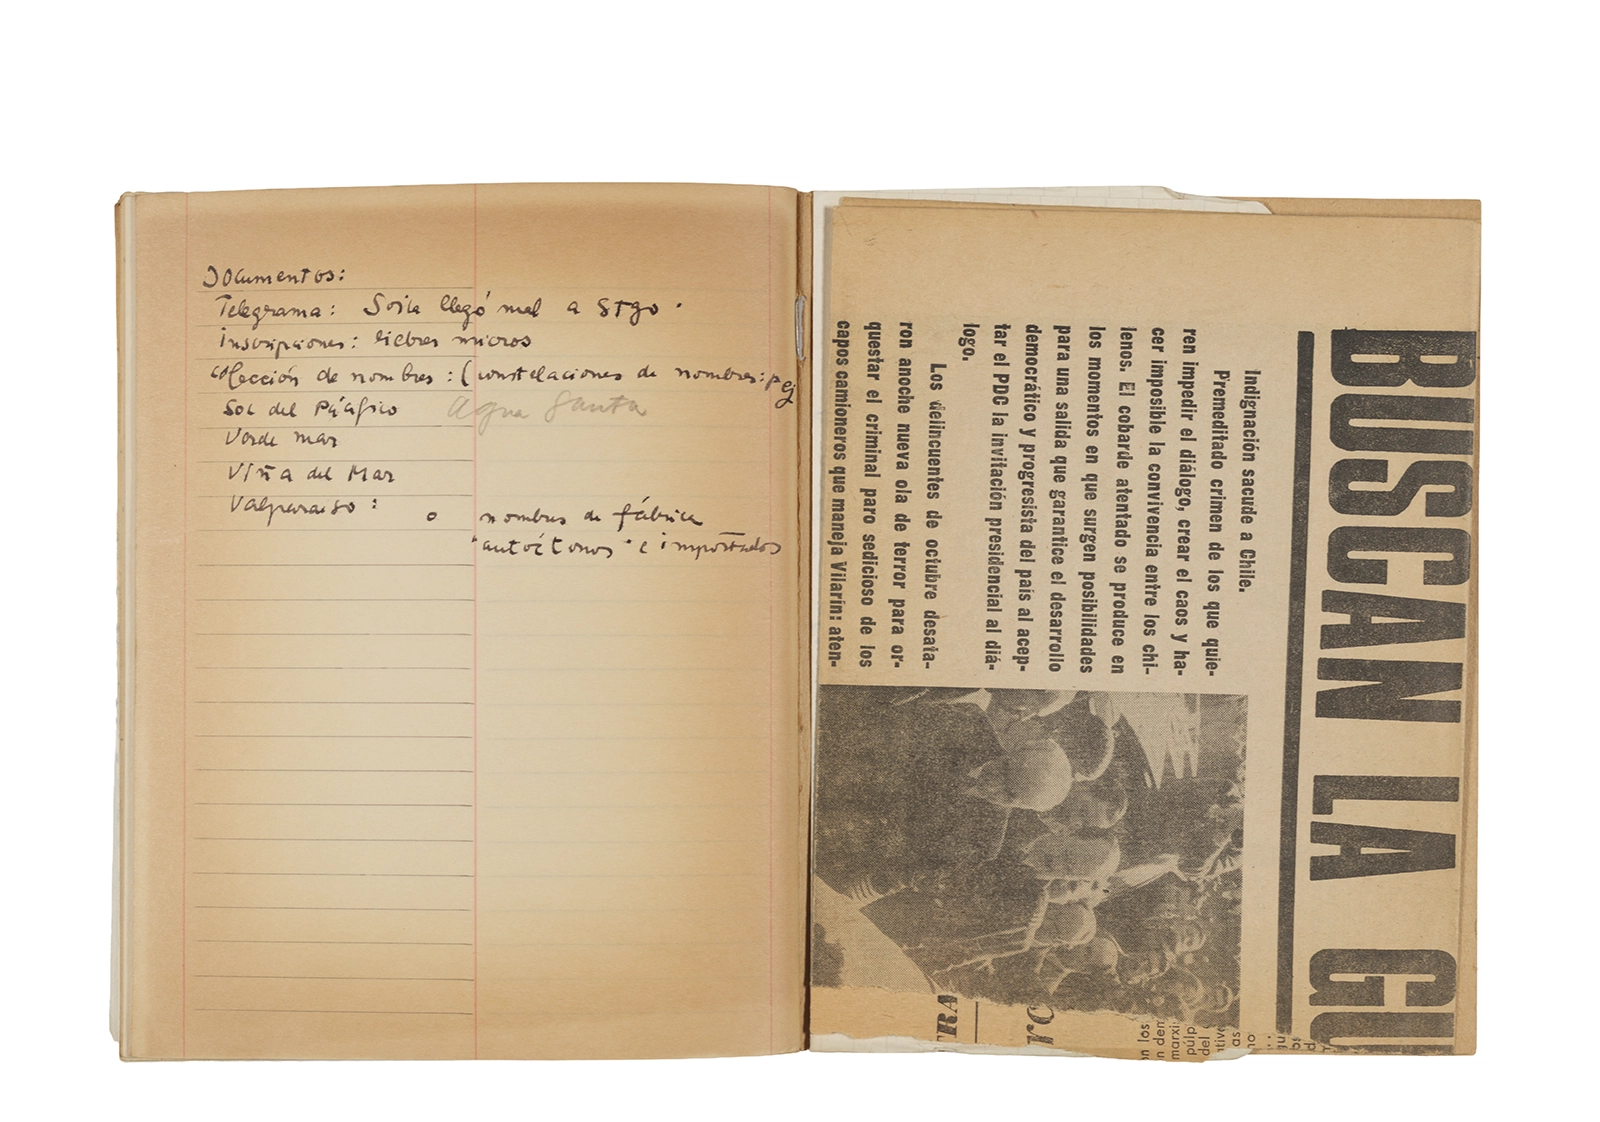 Documentos:
Telegrama: Soila llegó mal a Stgo.
Inscripciones: liebres micros
colección de nombres: (constelaciones de nombres: p ej
Sol del Pacífico Agua Santa
Verde mar
Viña del Mar
Valparaíso:
o nombres de fábrica
"autóctonos" e importados
BUSCAN LA GU
Indignación sacude a Chile.
Premeditado crimen de los que quie-
ren impedir el diálogo, crear el caos y ha-
cer imposible la convivencia entre los chi-
lenos. El cobarde atentado se produce en
los momentos en que surgen posibilidades
para una salida que garantice el desarrollo
democrático y progresista del país al acep-
tar el PDC la invitación presidencial al diá-
logo.
Los delincuentes de octubre desata-
ron anoche nueva ola de terror para or-
questar el criminal paro sedicioso de los
capos camioneros que maneja Vilarín: aten-
TRA
n los
n dem
marxi
pulp
del
ative
as
no